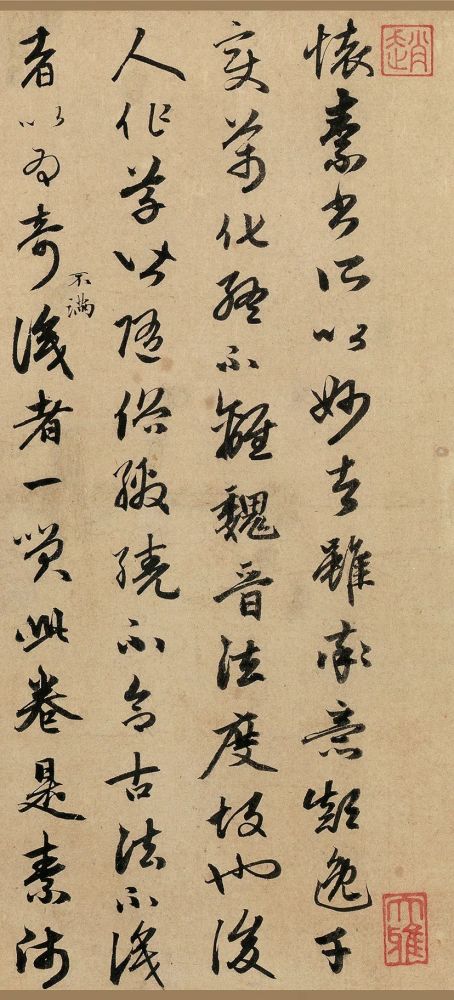 趙
懷素書所以妙者雖率意顛逸千
大雅
變萬化終不離魏晉法度故也後
人作草皆隨俗繳繞不合古法不識
者以為奇不滿識者一笑此卷是素師